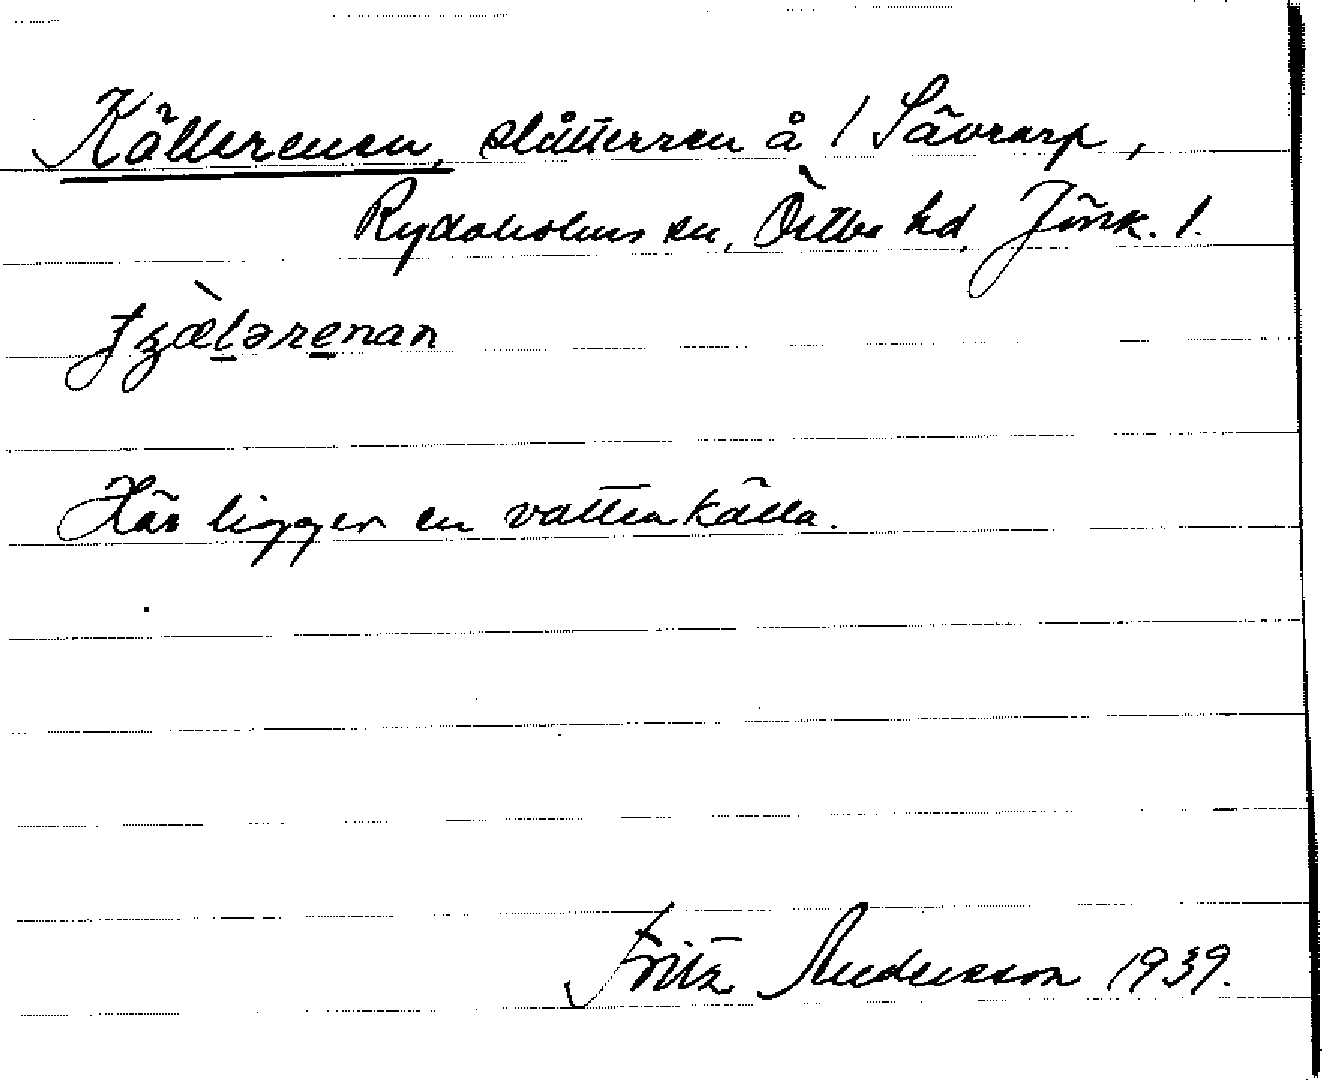 Källerenen, slåtterren å 1 Sävrarp,
Rydaholms sn, Östbo hd, Jönk. l.
Här ligger en vattenkälla.
Fritz Andersson 1939.